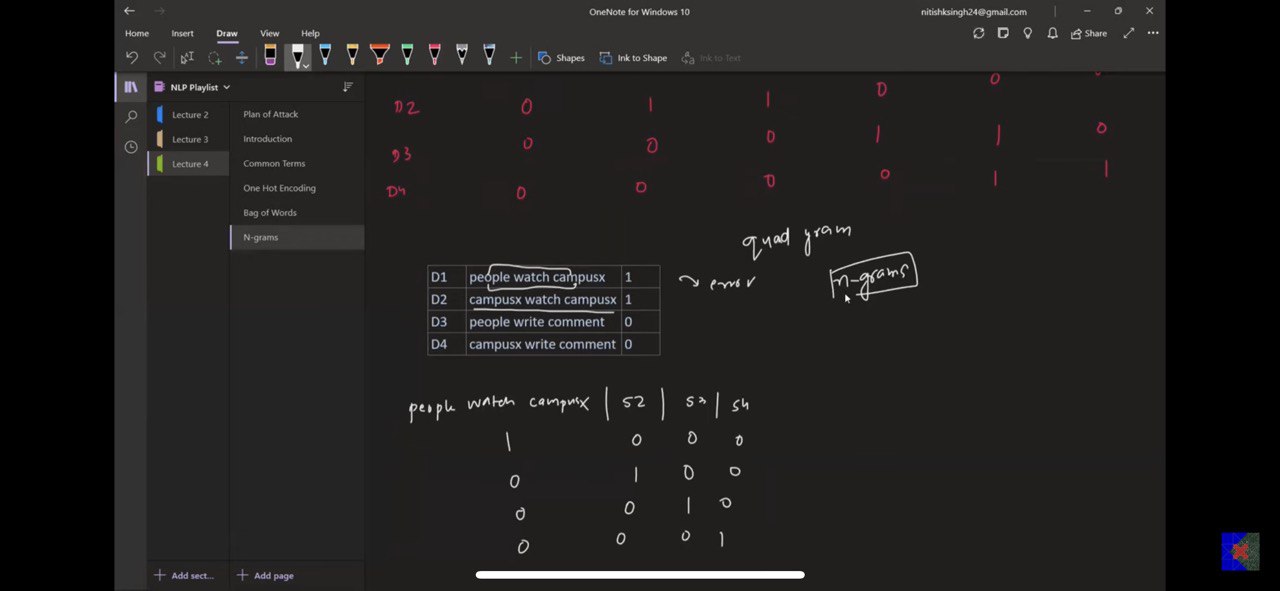 OneNote for Windows 10
nitishksingh24@gmail.com
Home Insert Draw View Help
Share
Shapes Ink to Shape Ink to Text
NLP Playlist
Lecture 2
Lecture 3
Lecture 4
Plan of Attack
Introduction
Common Terms
One Hot Encoding
Bag of Words
N-grams
0
D2 0 1 1 0
D3 0 0 0 1 1 0
D4 0 0 0 0 1 1
quad gram
n-grams
D1 people watch campusx 1
→ error
D2 campusx watch campusx 1
D3 people write comment 0
D4 campusx write comment 0
people watch campusx | S2 | S3 | S4
1 0 0 0
0 1 0 0
0 0 1 0
0 0 0 1
+ Add sect... + Add page